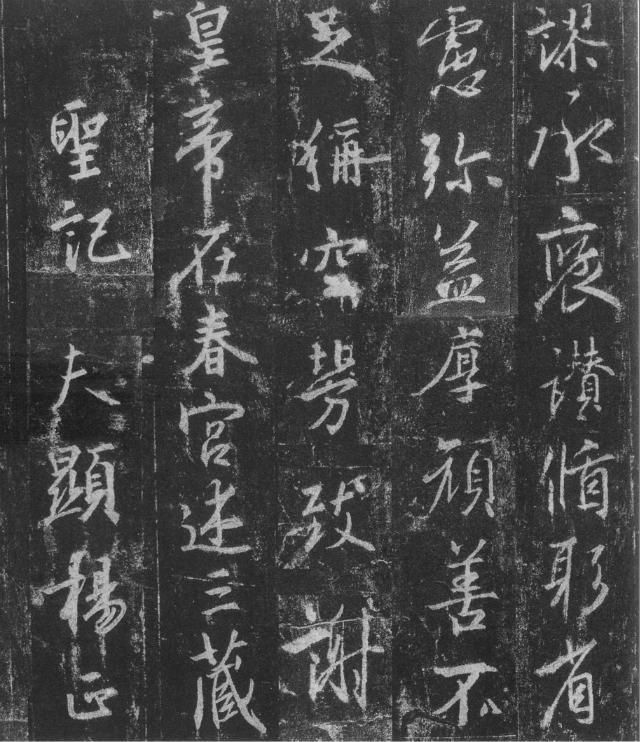 謬承褒讃循躬省
慮弥益厚顏善不
足稱空勞致謝
皇帝在春宮述三藏
聖記 夫顯揚正